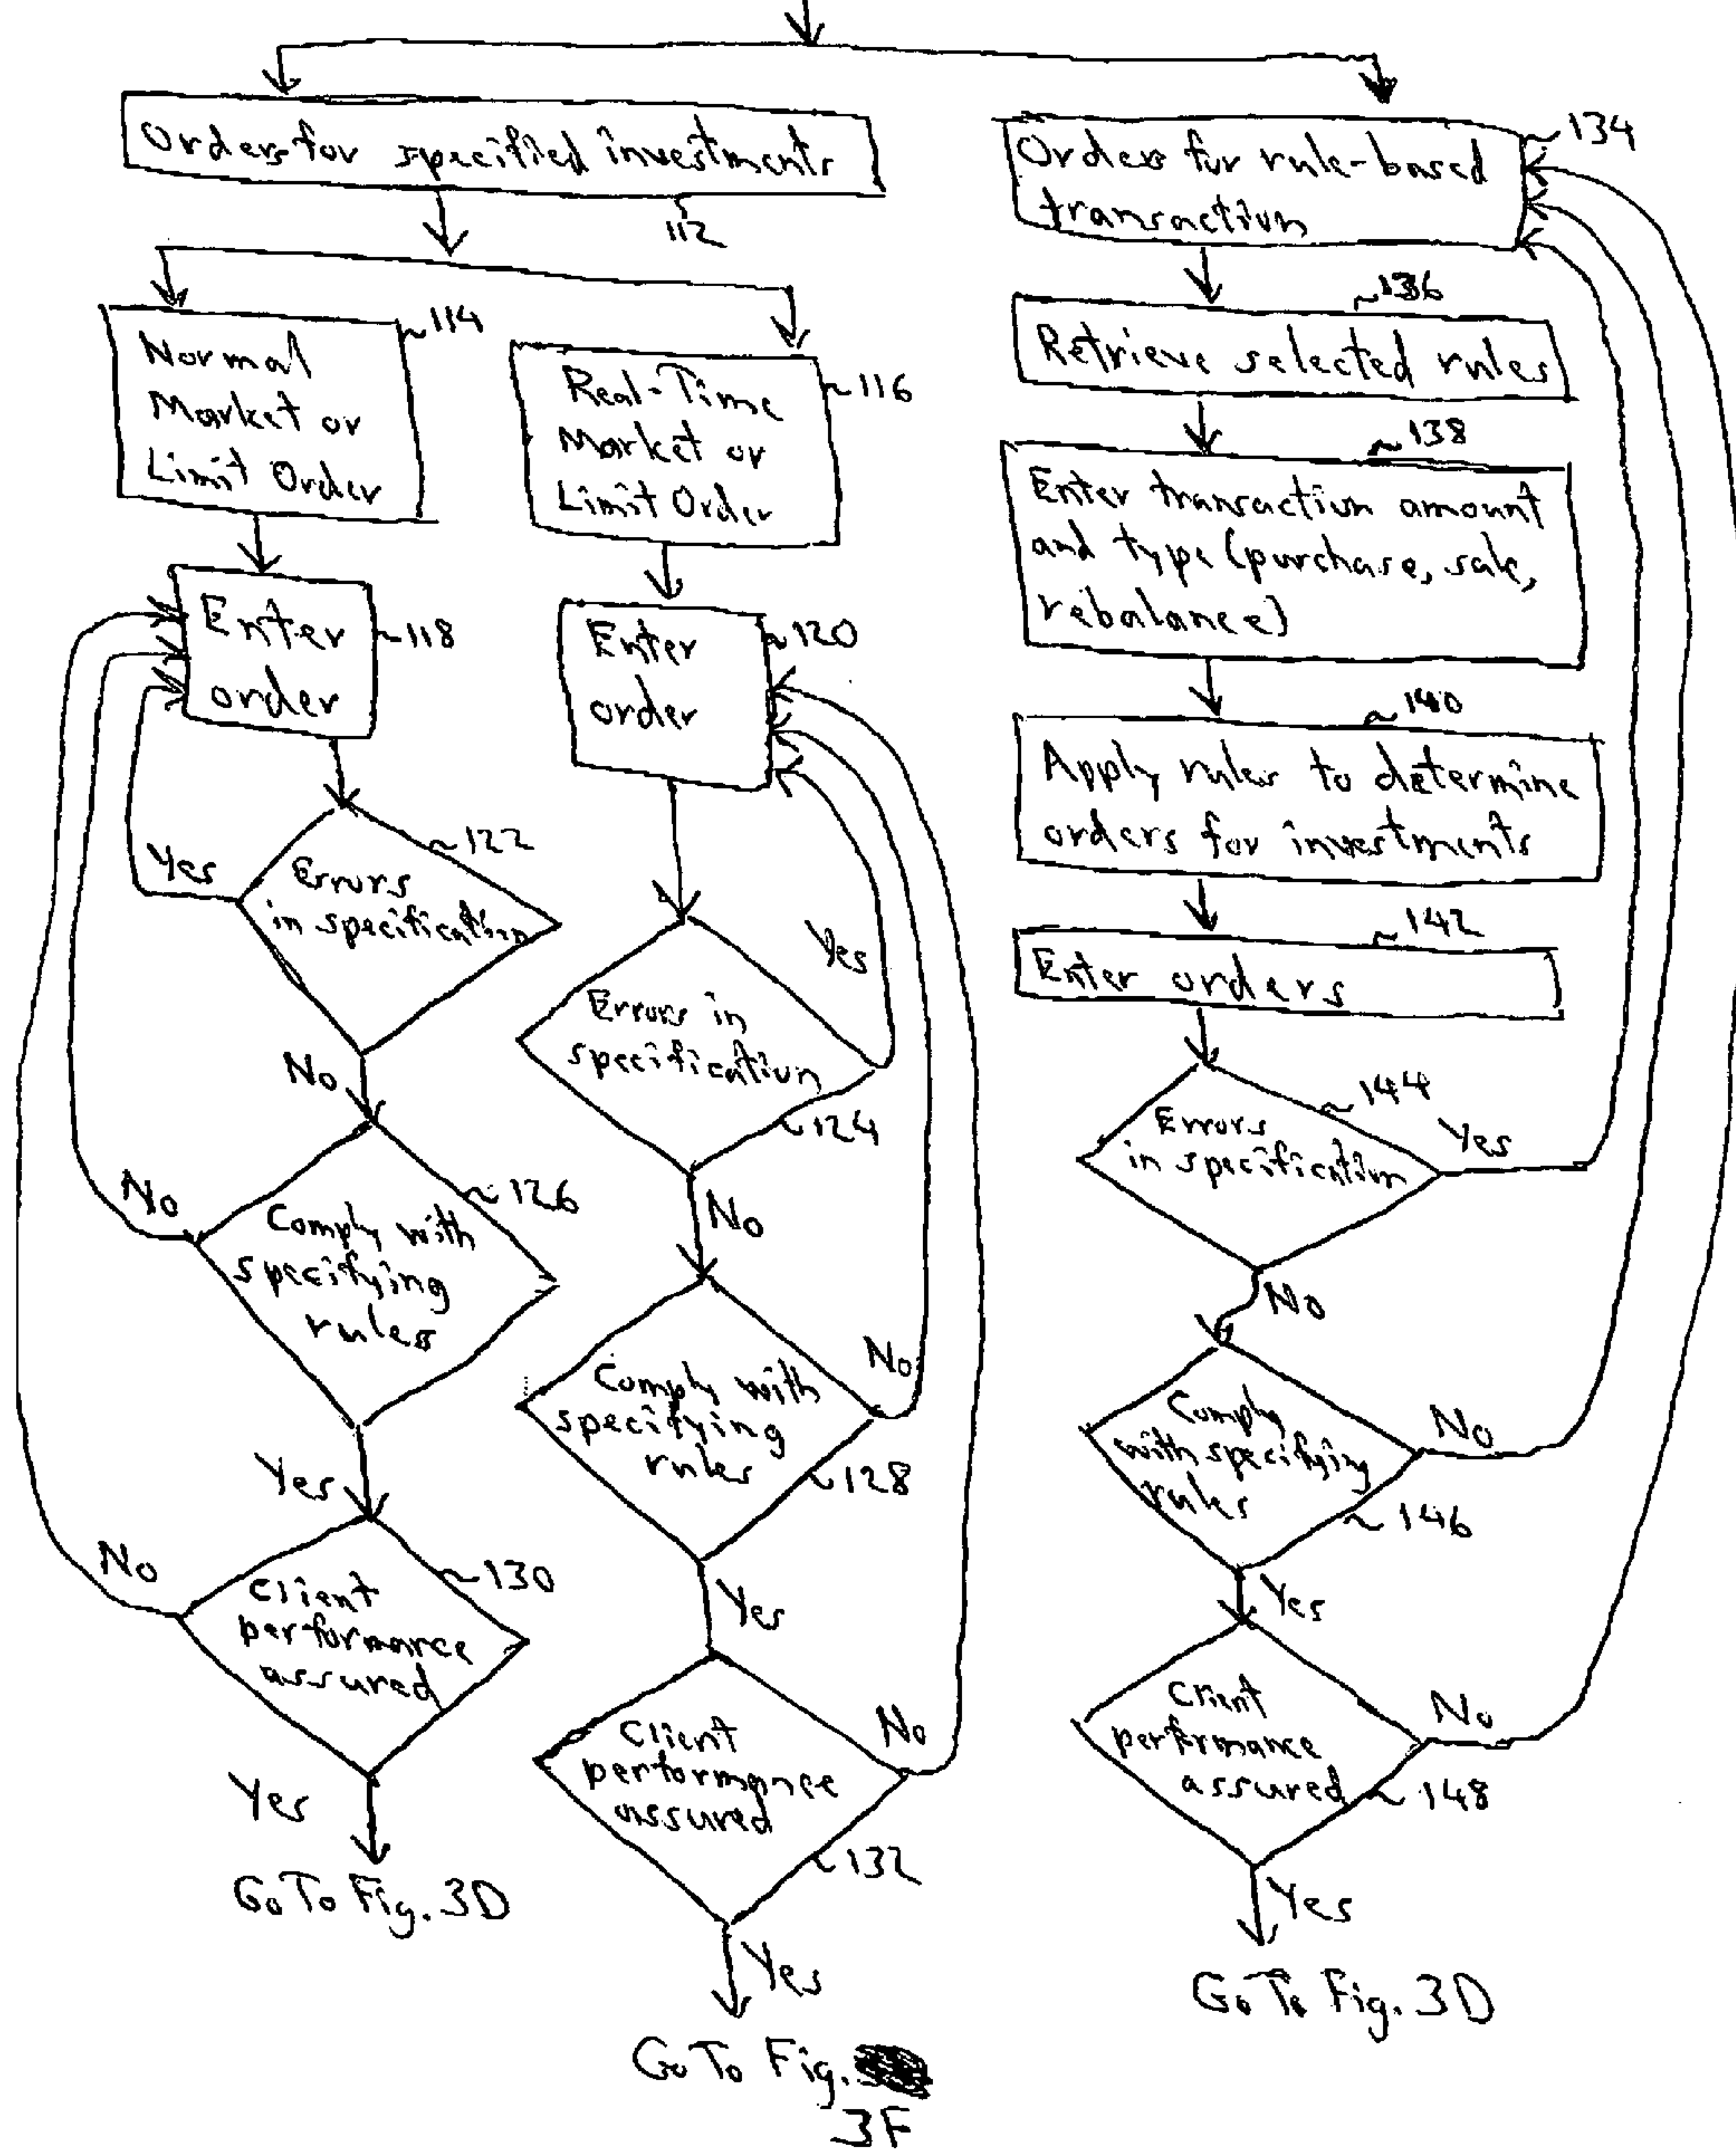 Orders for specified investments
112
Normal
Market or
Limit Order
114
Real-Time
Market or
Limit Order
116
Enter
order
118
Enter
order
120
Yes
Errors
in specification
122
No
Yes
Errors in
specification
124
No
No
Comply with
specifying
rules
126
Yes
No
Comply with
specifying
rules
128
Yes
No
Client
performance
assured
130
Yes
Go To Fig. 3D
No
Client
performance
assured
132
Yes
Go To Fig.
3F
Orders for rule-based
transaction
134
136
Retrieve selected rules
138
Enter transaction amount
and type (purchase, sale,
rebalance)
140
Apply rules to determine
orders for investments
142
Enter orders
144
Errors
in specification
Yes
No
Comply
with specifying
rules
No
146
Yes
Client
performance
assured
No
148
Yes
Go To Fig. 3D